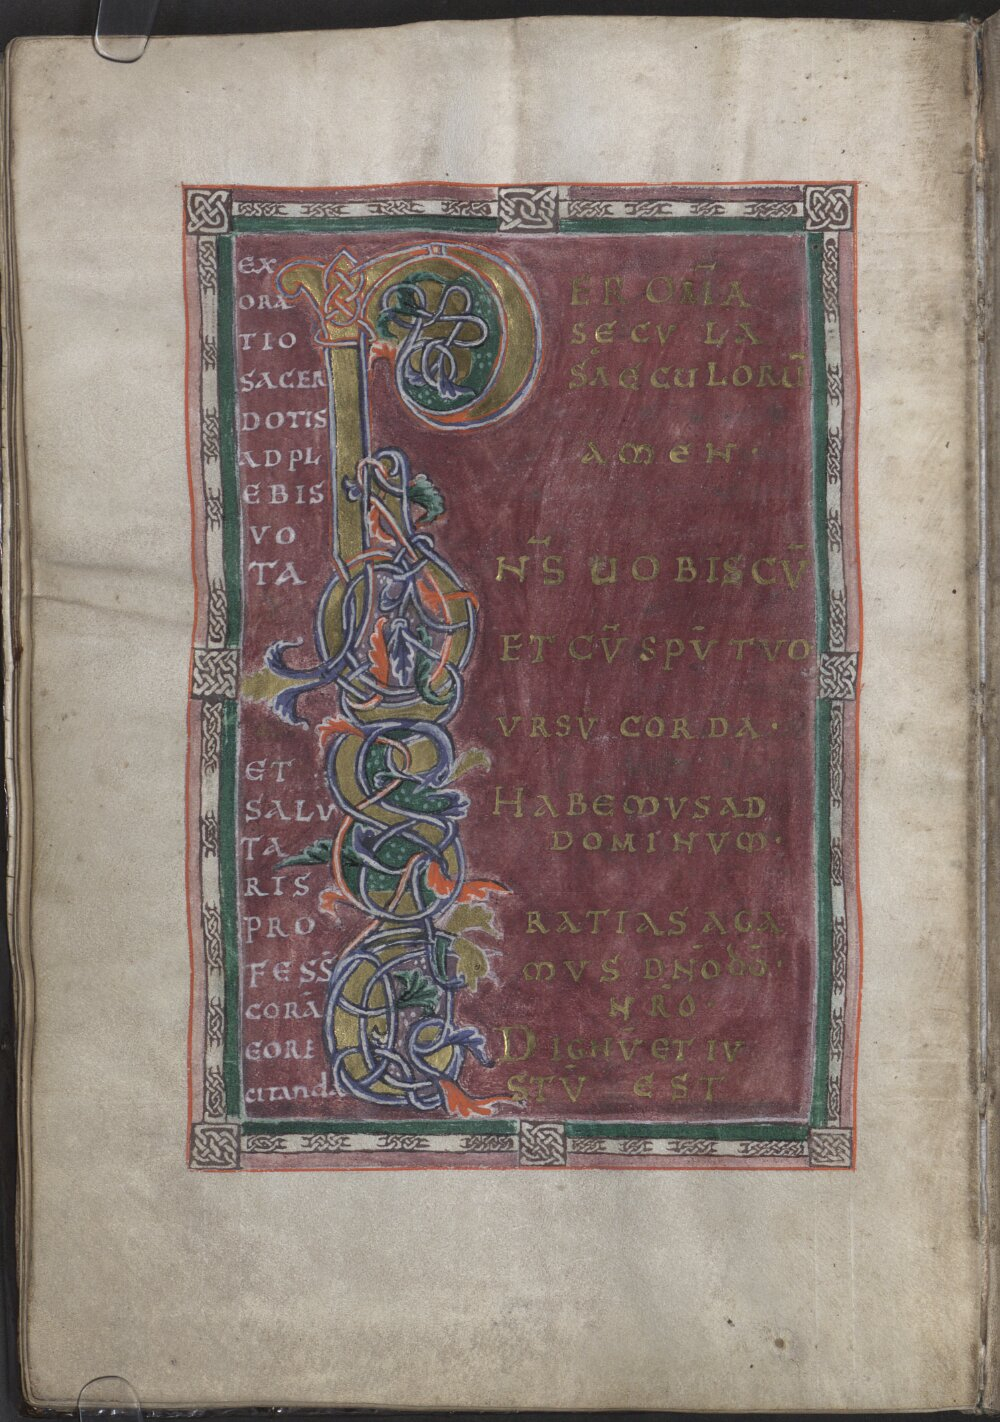 EX
ORA
TIO
SACER
DOTIS
AD PL
EBIS
VO
TA
ET
SALU
TA
RIS
PRO
FESS̄
CORĀ
EORE
citanda
PER OM̄IA
SECULA
SAECULORŪ
AMEN·
DN̄S UOBISCŪ
ET CŪ SPŪ TUO
SURSŪ CORDA·
HABEMUS AD
DOMINUM·
GRATIAS AGA
MUS DN̄O DŌ·
NR̄O·
DIGNŪ ET IU
STŪ EST